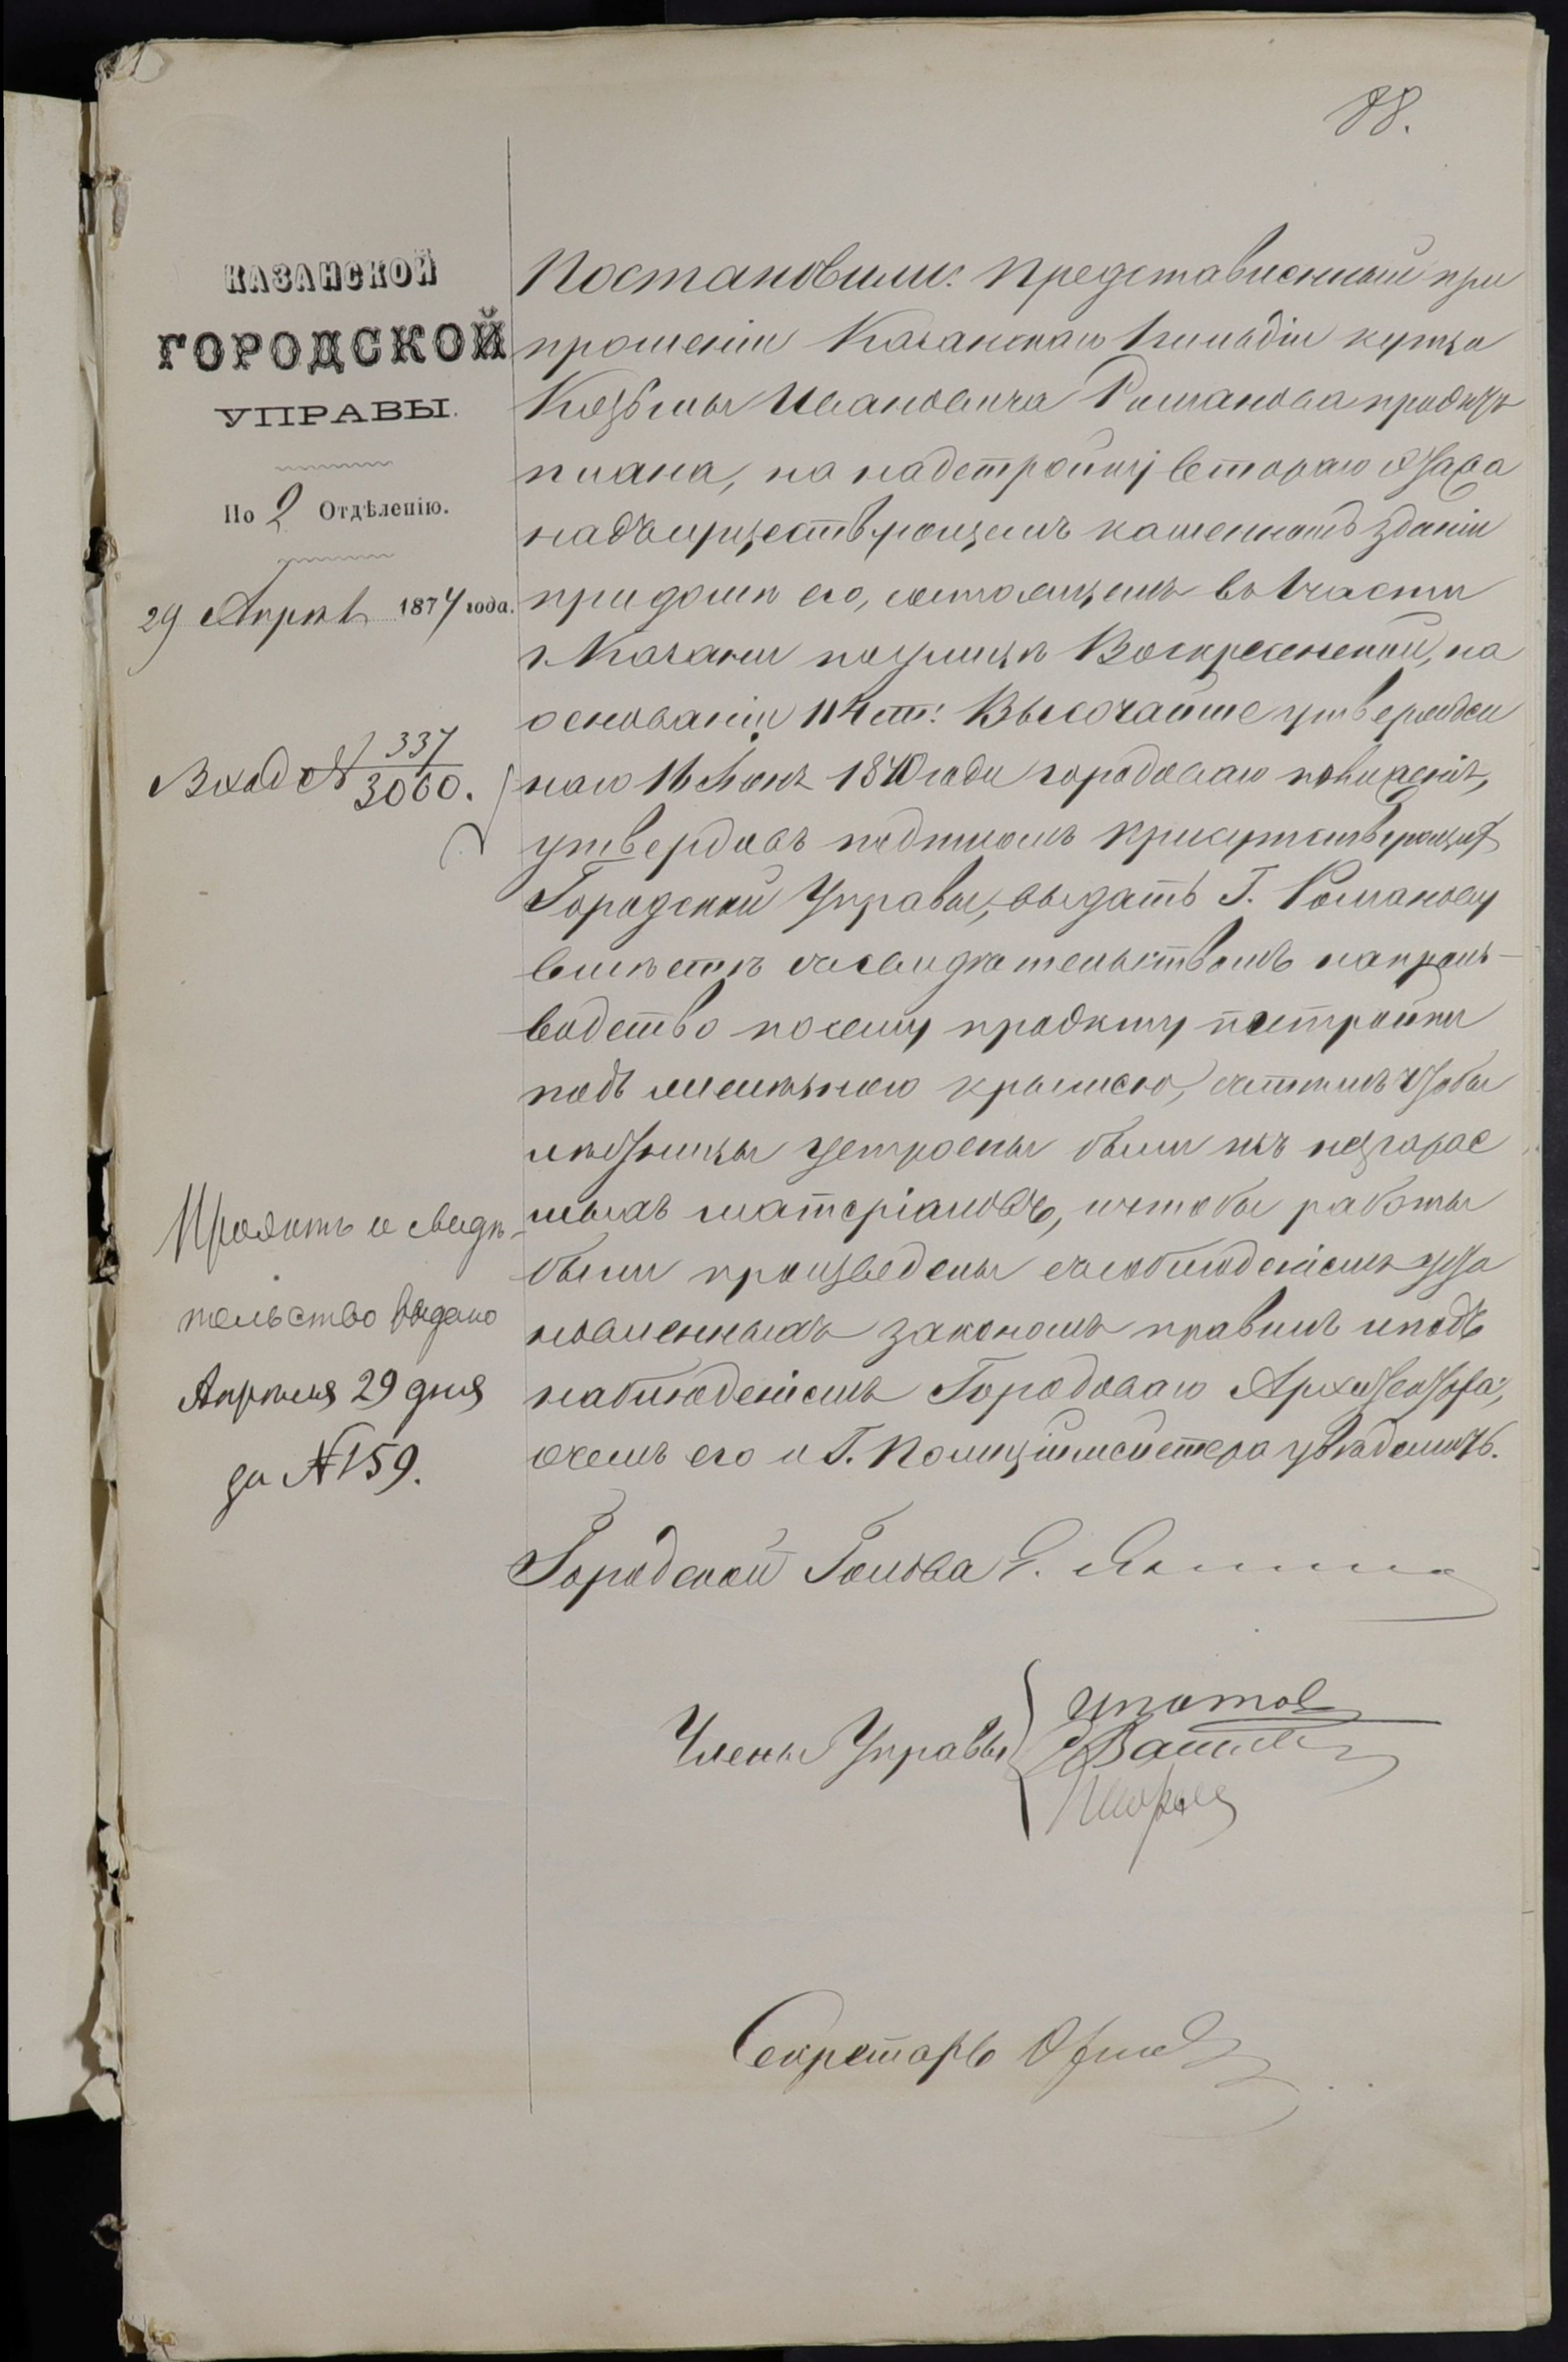 88.
КАЗАНСКОЙ
ГОРОДСКОЙ
УПРАВЫ.
По 2 Отдѣленію.
29 Апрѣля 1874 года.
Вход № 337
3060.
Постановили: Представленный при
прошеніи Казанскаго 1 гильдіи купца
Козьмы Ивановича Романова проэктъ
плана, на надстройку втораго этажа
надъ существующимъ каменнымъ зданіи
при домѣ его, состоящемъ въ 1 части
г. Казани по улицѣ Воскресенской, на
основаніи 114 ст: Высочайше утвержден
наго 16 Іюня 1870 года городоваго положенія,
утвердивъ подписомъ присутствующихъ
Городской Управы, выдать Г. Романову
вмѣстѣ съ свидѣтельствомъ на произ-
водство по сему проэкту постройки
подъ желѣзною крышею, съ тѣмъ чтобы
лѣстницы устроены были изъ несгарае
мыхъ матеріаловъ, и чтобы работы
были произведены съ соблюденіемъ уста
новленныхъ закономъ правилъ и подъ
наблюденіемъ Городоваго Архитектора,
о чемъ его и Г. Полиціймейстера увѣдомить.
Проэктъ и свидѣ-
тельство выдано
Апрѣля 29 дня
за № 159.
Городской Голова Э. Янишевскій
Члены Управы
Ипатов
Секретарь